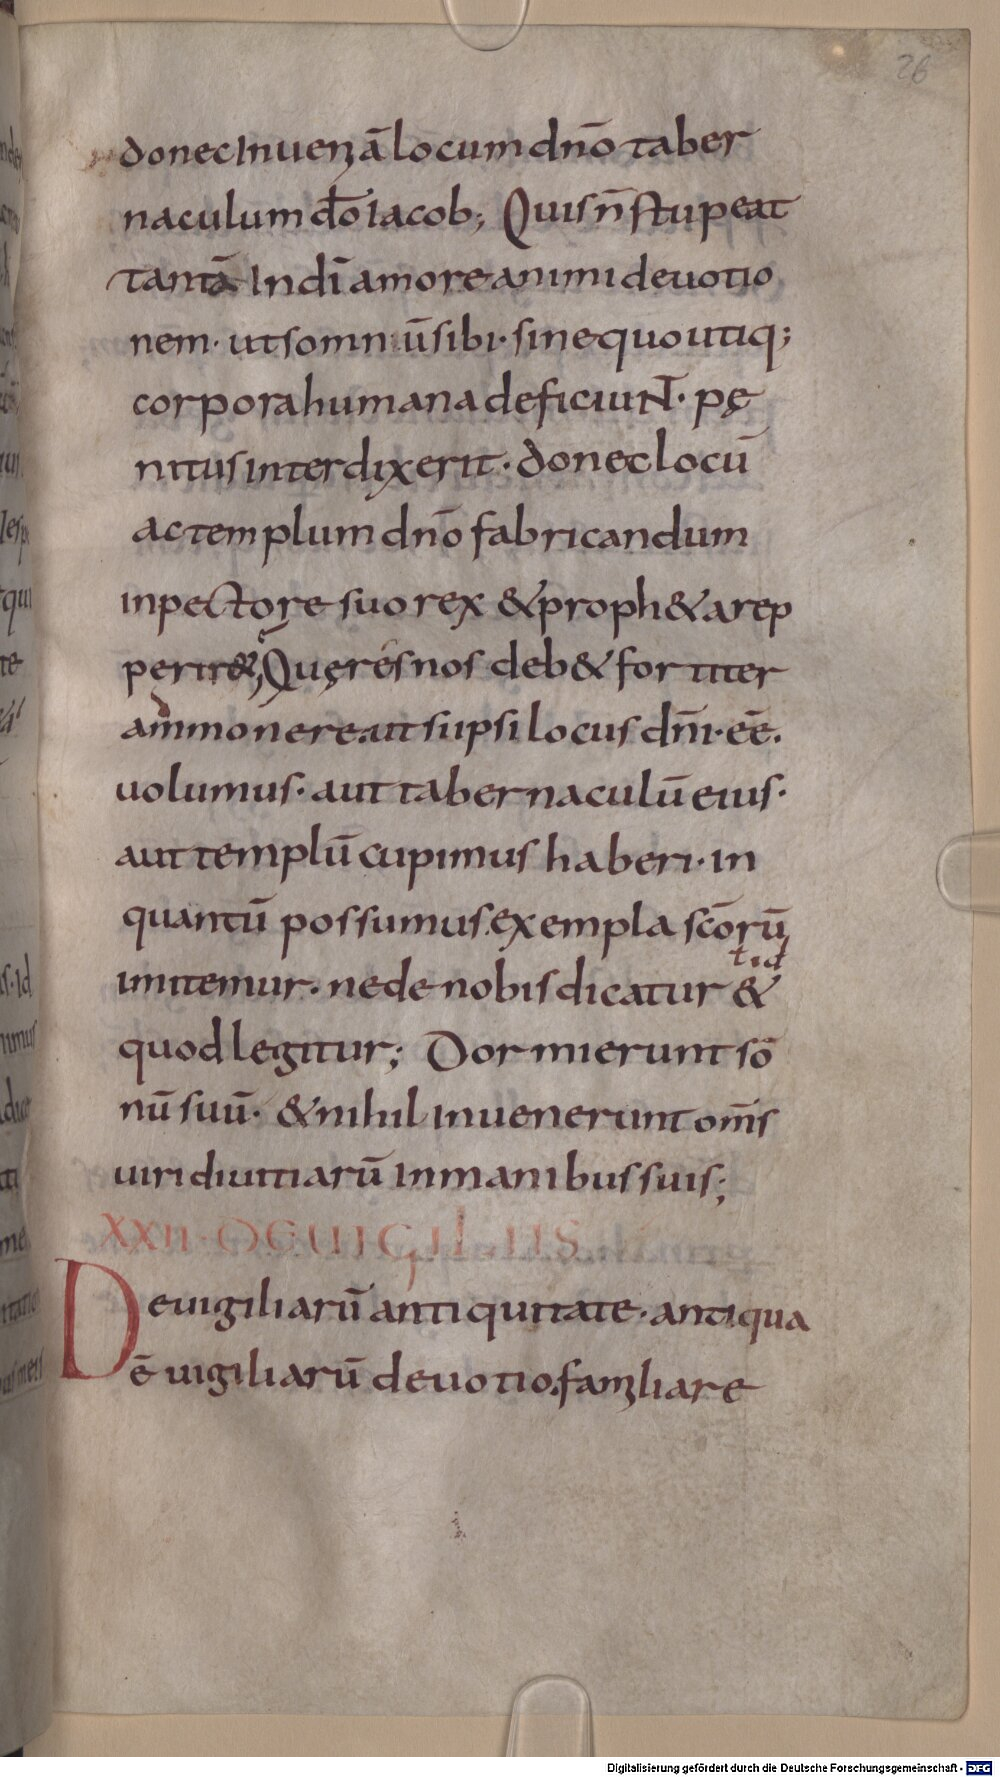 26
donec Inueniā locum dn̄o taber
naculum dō Iacob; Quis n̄ stupeat
tantā In dī amore animi deuotio
nem· ut somnūsibi· sine quo utiq;
corpora humana deficiuNT· pę
nitus interdixerit· donec locū
ac templum dn̄o fabricandum
in pectore suo rex & proph&a rep
perir&; Quę res nos deb& fortiter
ammonere· ut si ipsi locus dn̄i· eē·
uolumus· aut tabernaculū eius·
aut templū cupimus haberi· in
quantū possumus· exempla scōrū
ł id
imitemur· ne de nobis dicatur &
quod legitur; Dormierunt sō
nū suū· & nihil inuenerunt om̄s
uiri diuitiarū In manibus suis;
XXII· DE UIGILIIS
De uigiliarū antiquitate· antiqua
ē uigiliarū deuotio· familiare
Digitalisierung gefördert durch die Deutsche Forschungsgemeinschaft - DFG